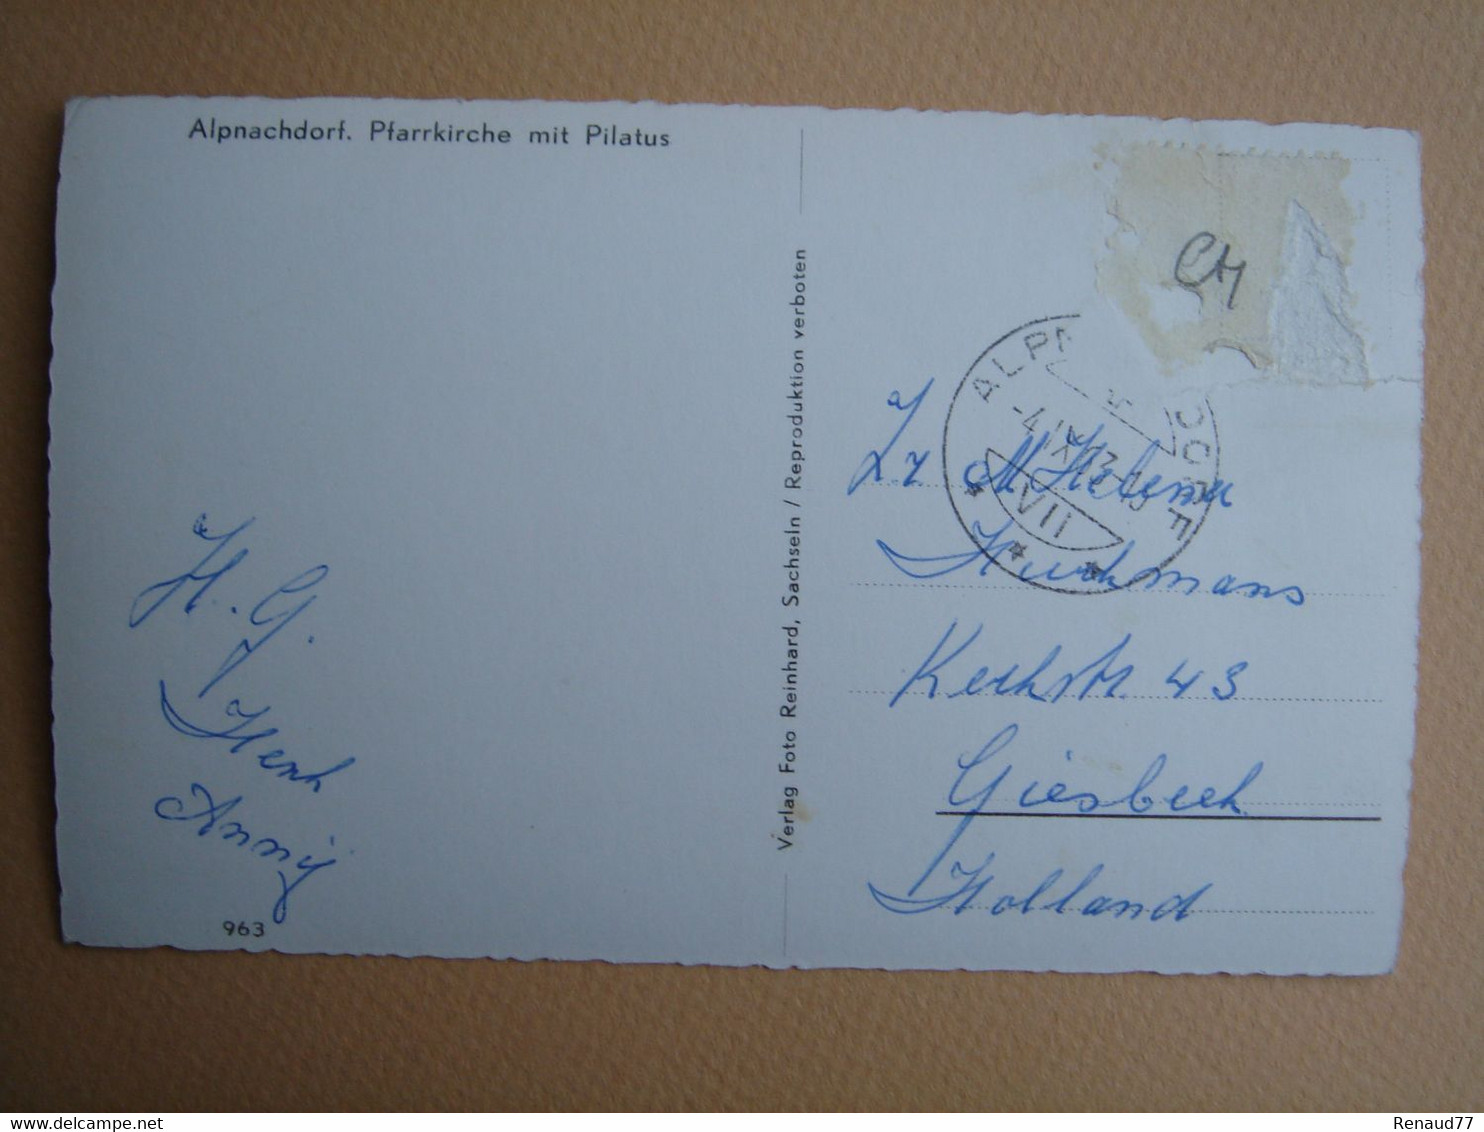 Alpnachdorf. Pfarrkirche mit Pilatus
H. G.
Henk
Annij
963
Verlag Foto Reinhard, Sachseln / Reproduktion verboten
CH
ALPN DORF
-4.IX.
VII
Zr M Helena
Kerkstr 43
Giesbeek
Holland
Renaud77